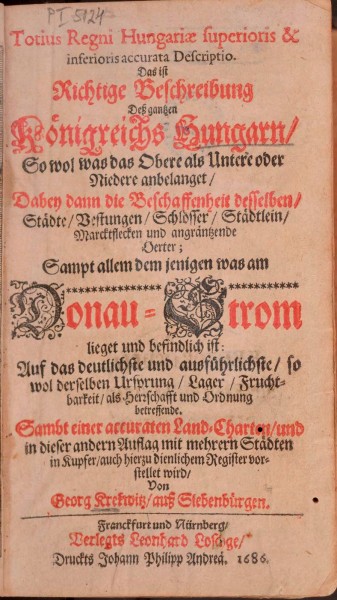 PI 5124
Totius Regni Hungariæ superioris &
inferioris accurata Descriptio.
Das ist
Richtige Beschreibung
Deß gantzen
Königreichs Hungarn/
So wol was das Obere als Untere oder
Niedere anbelanget/
Dabey dann die Beschaffenheit desselben/
Städte/ Vestungen/ Schlösser/ Städtlein/
Marcktflecken und angräntzende
Oerter;
Sampt allem dem jenigen was am
Donau-Strom
lieget und befindlich ist:
Auf das deutlichste und ausführlichste/ so
wol derselben Ursprung/ Lager/ Frucht-
barkeit/ als Herrschafft und Ordnung
betreffende.
Sambt einer accuraten Land-Charten/ und
in dieser andern Auflag mit mehrern Städten
in Kupfer/ auch hierzu dienlichem Register vor-
stellet wird/
Von
Georg Krekwitz/ auß Siebenbürgen.
Franckfurt und Nürnberg/
Verlegts Leonhard Loschge/
Druckts Johann Philipp Andreä. 1686.